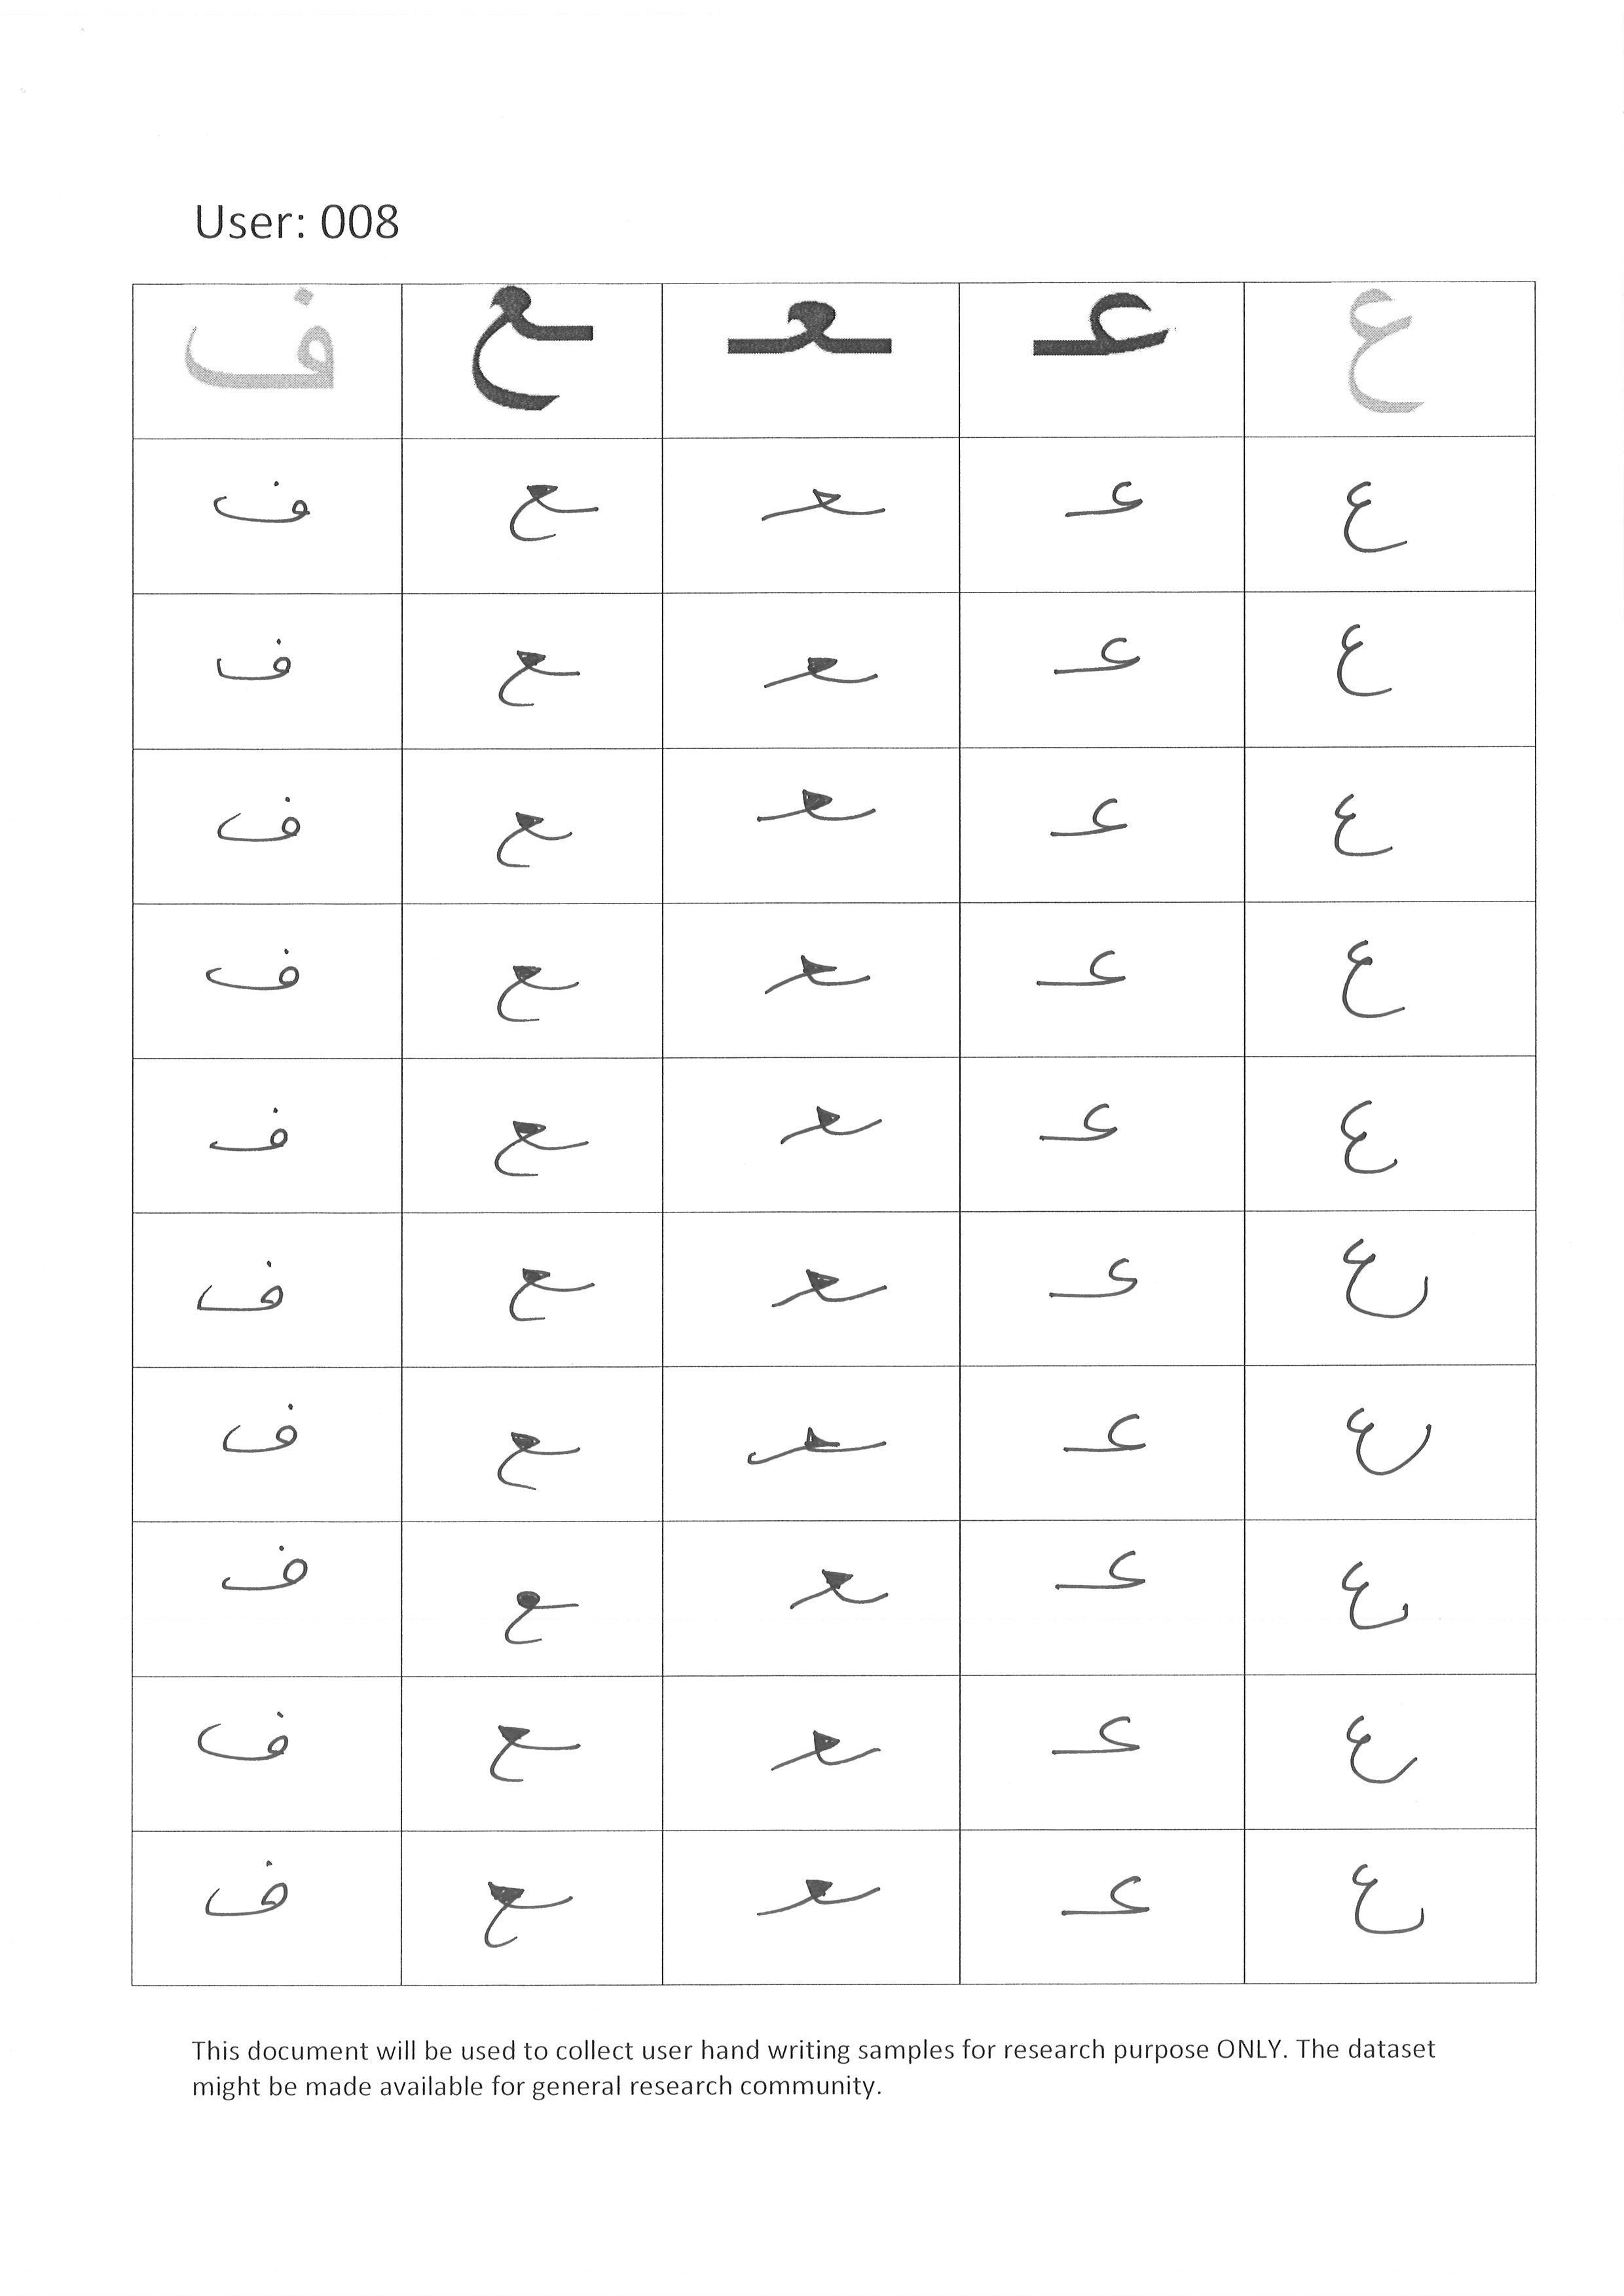 User: 008
ع عـ ـعـ ـع ف
ع عـ ـعـ ـع ف
ع عـ ـعـ ـع ف
ع عـ ـعـ ـع ف
ع عـ ـعـ ـع ف
ع عـ ـعـ ـع ف
ع عـ ـعـ ـع ف
ع عـ ـعـ ـع ف
ع عـ ـعـ ـع ف
ع عـ ـعـ ـع ف
ع عـ ـعـ ـع ف
This document will be used to collect user hand writing samples for research purpose ONLY. The dataset
might be made available for general research community.